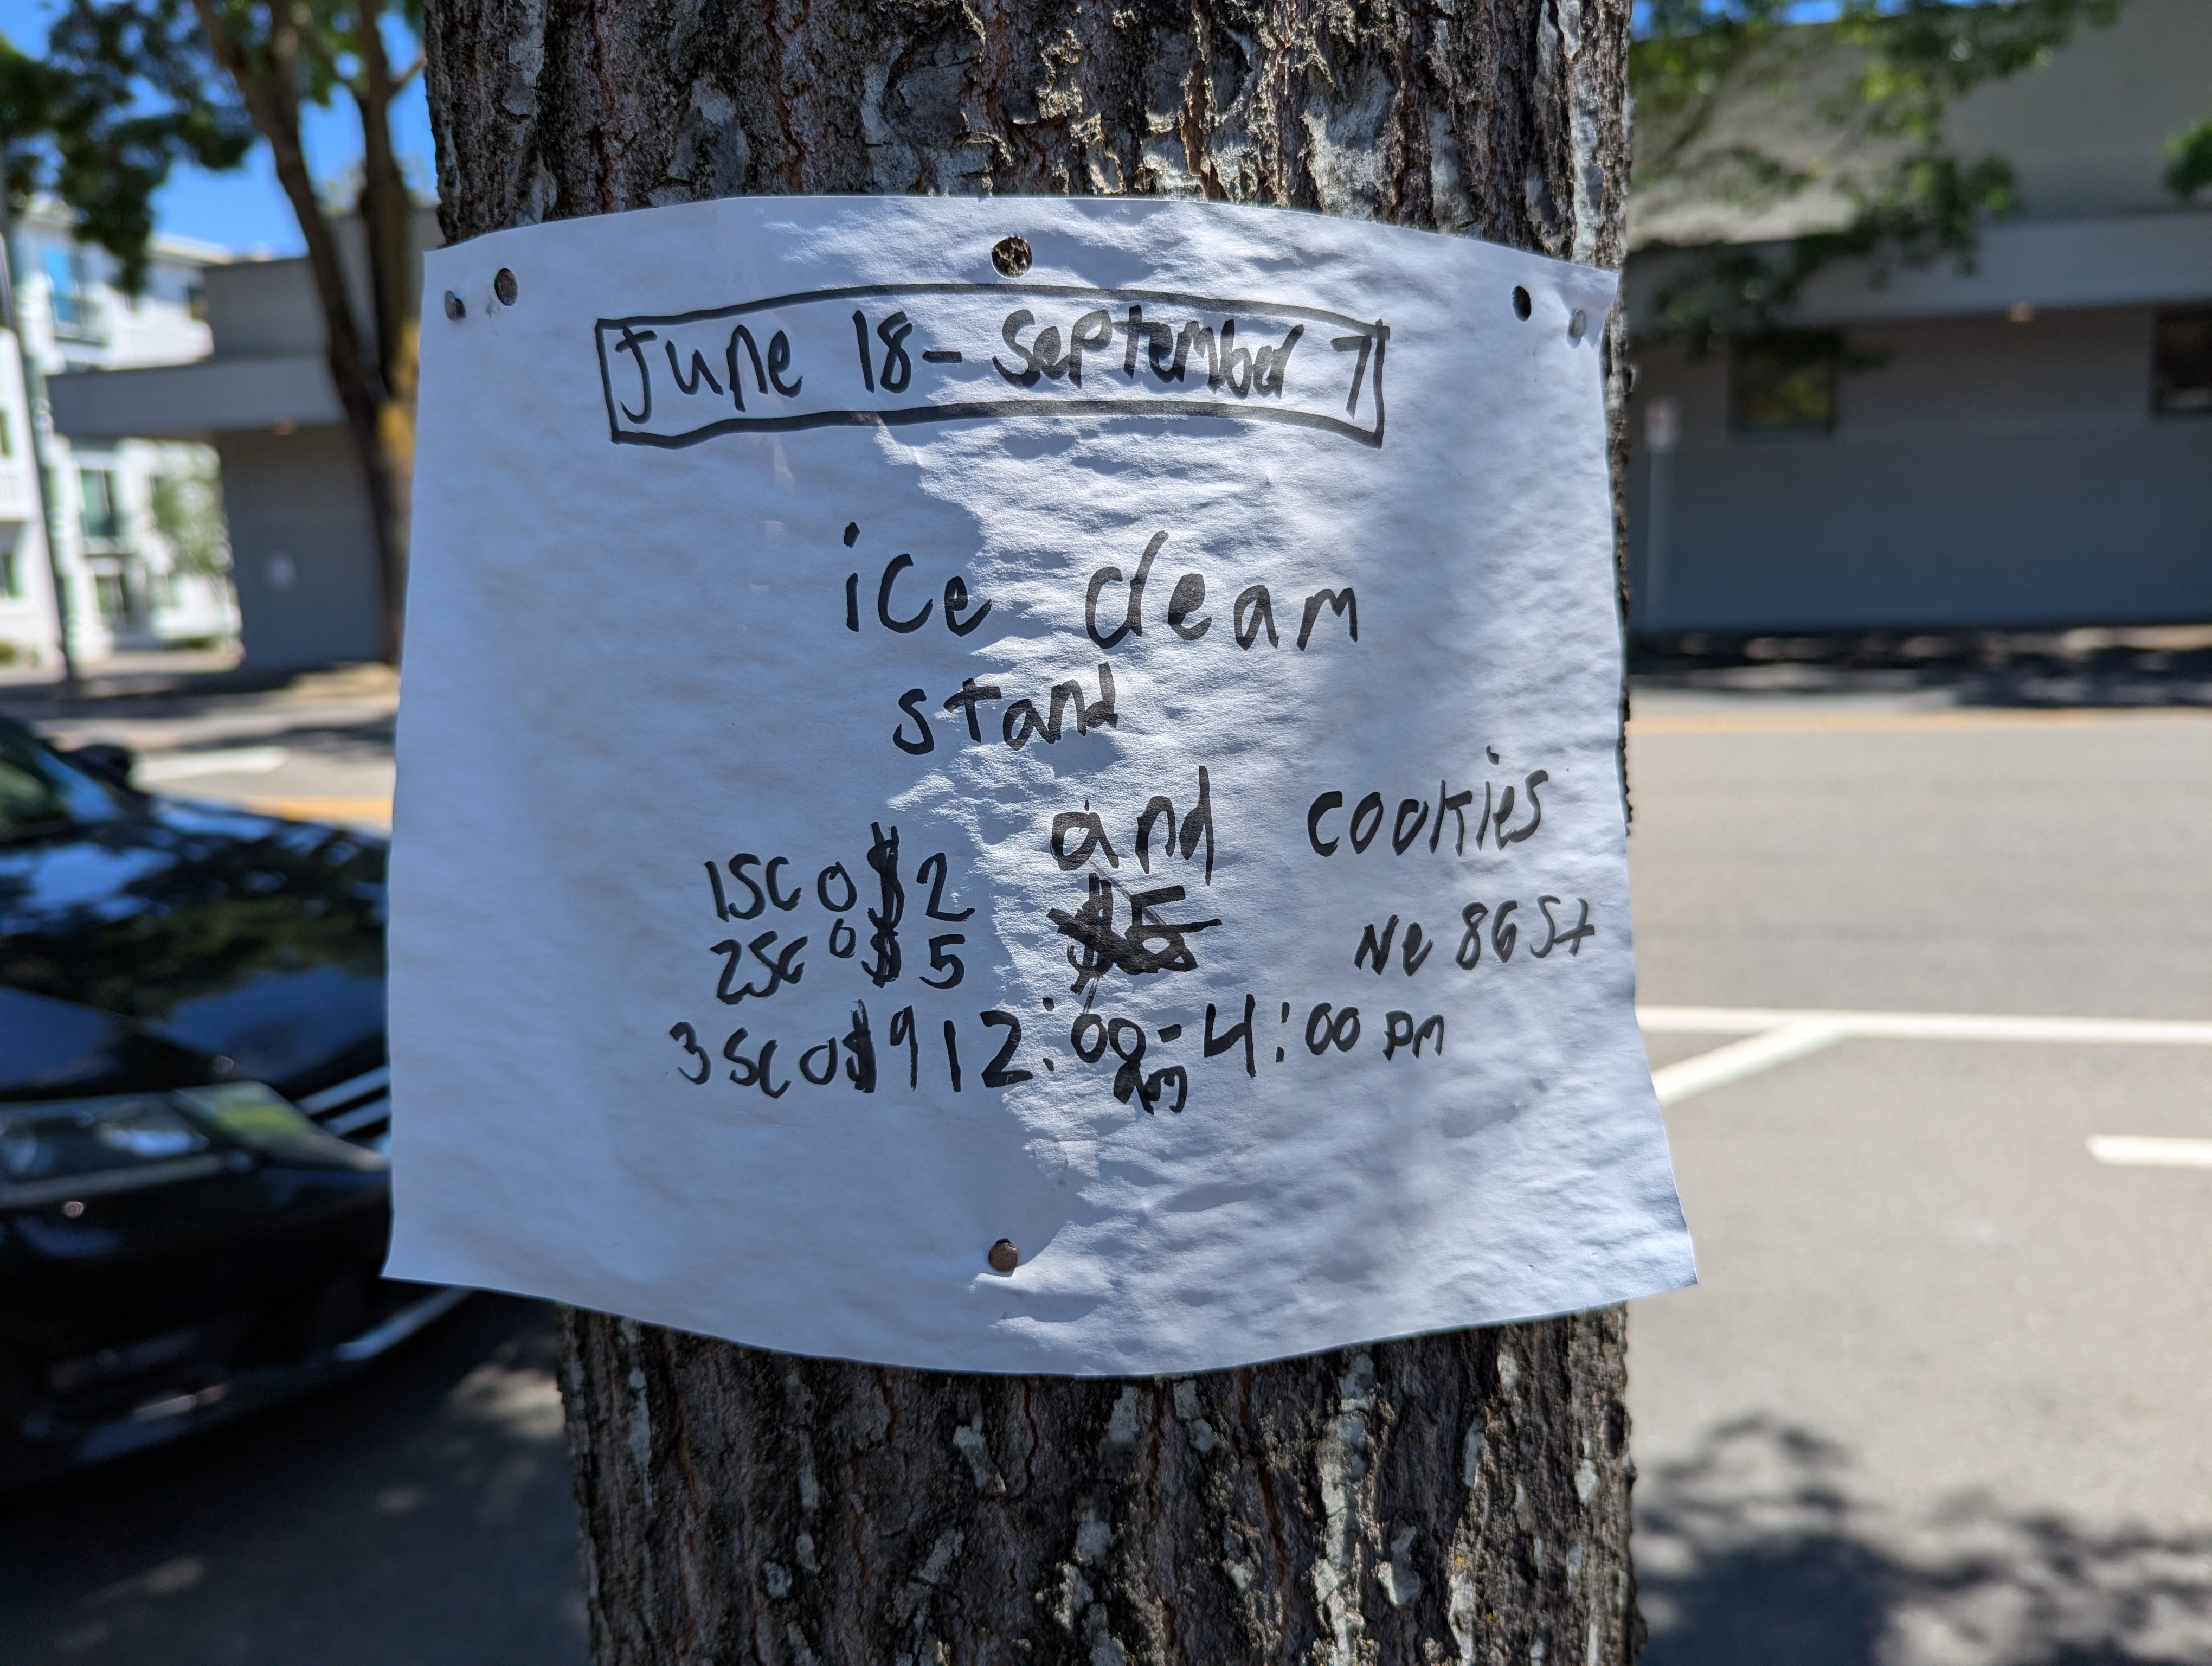 June 18 - September 7
ice cream
stand
and cookies
1SCO $2
2SCO $5
Ne 86 St
3SCO $9 12:00 - 4:00 pm
am